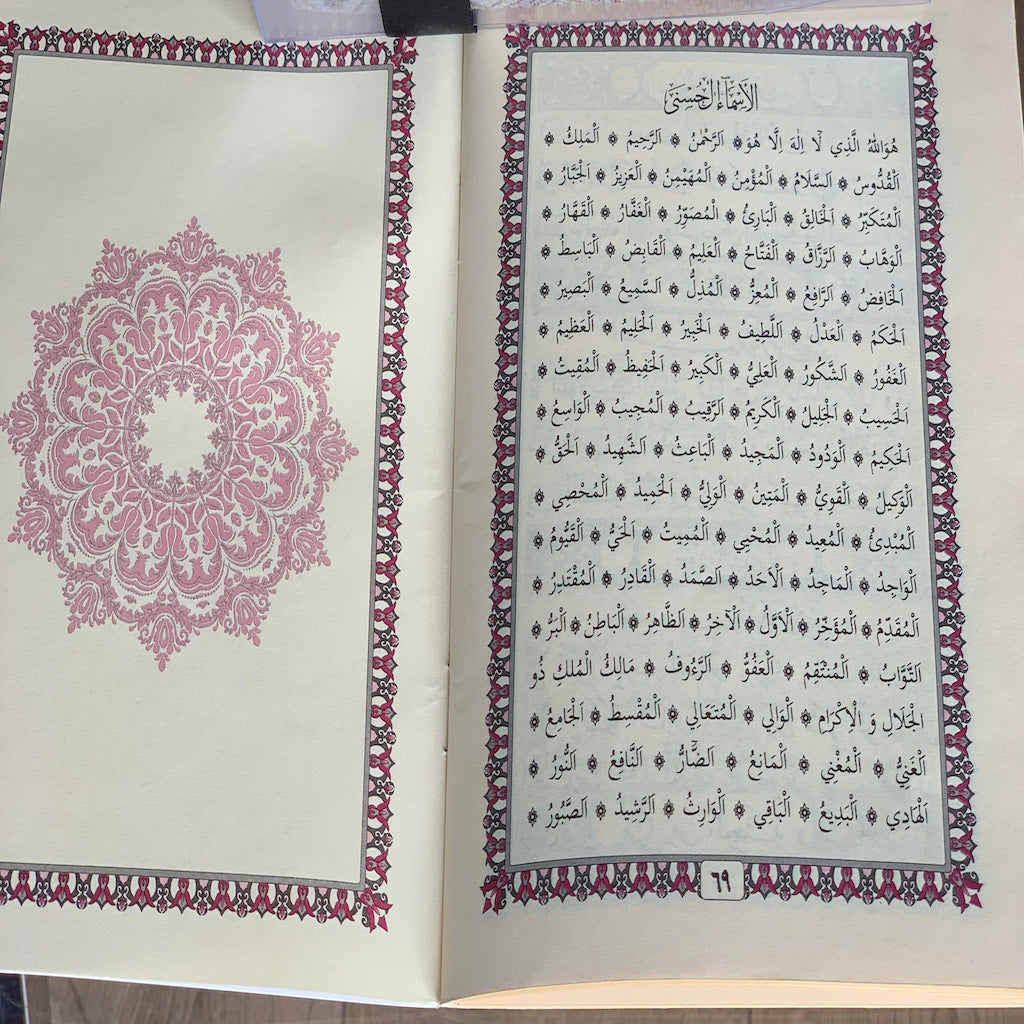 الأسماء الحسنى
هُوَاللهُ الَّذِي لَٓا اِلٰهَ اِلَّا هُوَ ۞ اَلرَّحْمٰنُ ۞ اَلرَّحِيمُ ۞ اَلْمَلِكُ ۞
اَلْقُدُّوسُ ۞ اَلسَّلَامُ ۞ اَلْمُؤْمِنُ ۞ اَلْمُهَيْمِنُ ۞ اَلْعَزِيزُ ۞ اَلْجَبَّارُ ۞
اَلْمُتَكَبِّرُ ۞ اَلْخَالِقُ ۞ اَلْبَارِئُ ۞ اَلْمُصَوِّرُ ۞ اَلْغَفَّارُ ۞ اَلْقَهَّارُ ۞
اَلْوَهَّابُ ۞ اَلرَّزَّاقُ ۞ اَلْفَتَّاحُ ۞ اَلْعَلِيمُ ۞ اَلْقَابِضُ ۞ اَلْبَاسِطُ ۞
اَلْخَافِضُ ۞ اَلرَّافِعُ ۞ اَلْمُعِزُّ ۞ اَلْمُذِلُّ ۞ اَلسَّمِيعُ ۞ اَلْبَصِيرُ ۞
اَلْحَكَمُ ۞ اَلْعَدْلُ ۞ اَللَّطِيفُ ۞ اَلْخَبِيرُ ۞ اَلْحَلِيمُ ۞ اَلْعَظِيمُ ۞
اَلْغَفُورُ ۞ اَلشَّكُورُ ۞ اَلْعَلِيُّ ۞ اَلْكَبِيرُ ۞ اَلْحَفِيظُ ۞ اَلْمُقِيتُ ۞
اَلْحَسِيبُ ۞ اَلْجَلِيلُ ۞ اَلْكَرِيمُ ۞ اَلرَّقِيبُ ۞ اَلْمُجِيبُ ۞ اَلْوَاسِعُ ۞
اَلْحَكِيمُ ۞ اَلْوَدُودُ ۞ اَلْمَجِيدُ ۞ اَلْبَاعِثُ ۞ اَلشَّهِيدُ ۞ اَلْحَقُّ ۞
اَلْوَكِيلُ ۞ اَلْقَوِيُّ ۞ اَلْمَتِينُ ۞ اَلْوَلِيُّ ۞ اَلْحَمِيدُ ۞ اَلْمُحْصِي ۞
اَلْمُبْدِئُ ۞ اَلْمُعِيدُ ۞ اَلْمُحْيِي ۞ اَلْمُمِيتُ ۞ اَلْحَيُّ ۞ اَلْقَيُّومُ ۞
اَلْوَاجِدُ ۞ اَلْمَاجِدُ ۞ اَلْاَحَدُ ۞ اَلصَّمَدُ ۞ اَلْقَادِرُ ۞ اَلْمُقْتَدِرُ ۞
اَلْمُقَدِّمُ ۞ اَلْمُؤَخِّرُ ۞ اَلْاَوَّلُ ۞ اَلْاٰخِرُ ۞ اَلظَّاهِرُ ۞ اَلْبَاطِنُ ۞ اَلْبَرُّ ۞
اَلتَّوَّابُ ۞ اَلْمُنْتَقِمُ ۞ اَلْعَفُوُّ ۞ اَلرَّءُوفُ ۞ مَالِكُ الْمُلكِ ذُو
الْجَلَالِ وَ الْاِكْرَامِ ۞ اَلْوَالِي ۞ اَلْمُتَعَالِي ۞ اَلْمُقْسِطُ ۞ اَلْجَامِعُ ۞
اَلْغَنِيُّ ۞ اَلْمُغْنِي ۞ اَلْمَانِعُ ۞ اَلضَّٓارُّ ۞ اَلنَّافِعُ ۞ اَلنُّورُ ۞
اَلْهَادِي ۞ اَلْبَدِيعُ ۞ اَلْبَاقِي ۞ اَلْوَارِثُ ۞ اَلرَّشِيدُ ۞ اَلصَّبُورُ ۞
٦٩